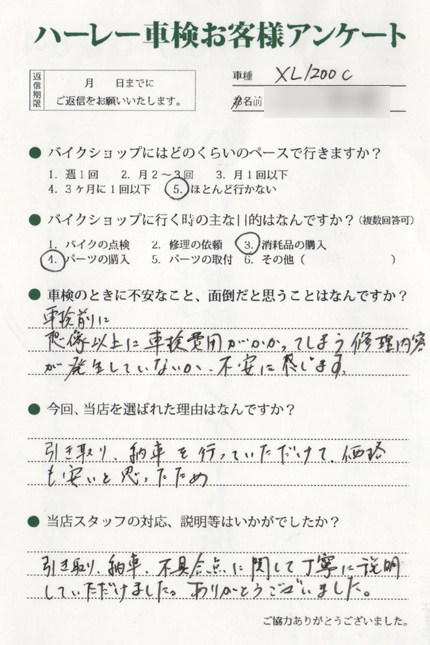 ハーレー車検お客様アンケート
返信期限
月 日までに
ご返信をお願いいたします。
車種 XL1200C
お名前
● バイクショップにはどのくらいのペースで行きますか？
1. 週1回 2. 月2〜3回 3. 月1回以下
4. 3ヶ月に1回以下 5. ほとんど行かない
● バイクショップに行く時の主な目的はなんですか？(複数回答可)
1. バイクの点検 2. 修理の依頼 3. 消耗品の購入
4. パーツの購入 5. パーツの取付 6. その他 ( )
● 車検のときに不安なこと、面倒だと思うことはなんですか？
車検前に
想像以上に車検費用がかかってしまう修理内容
が発生していないか、不安に感じます。
● 今回、当店を選ばれた理由はなんですか？
引き取り、納車を行っていただけて、価格
も安いと思ったため
● 当店スタッフの対応、説明等はいかがでしたか？
引き取り、納車、不具合点に関して丁寧に説明
していただけました。ありがとうございました。
ご協力ありがとうございました。